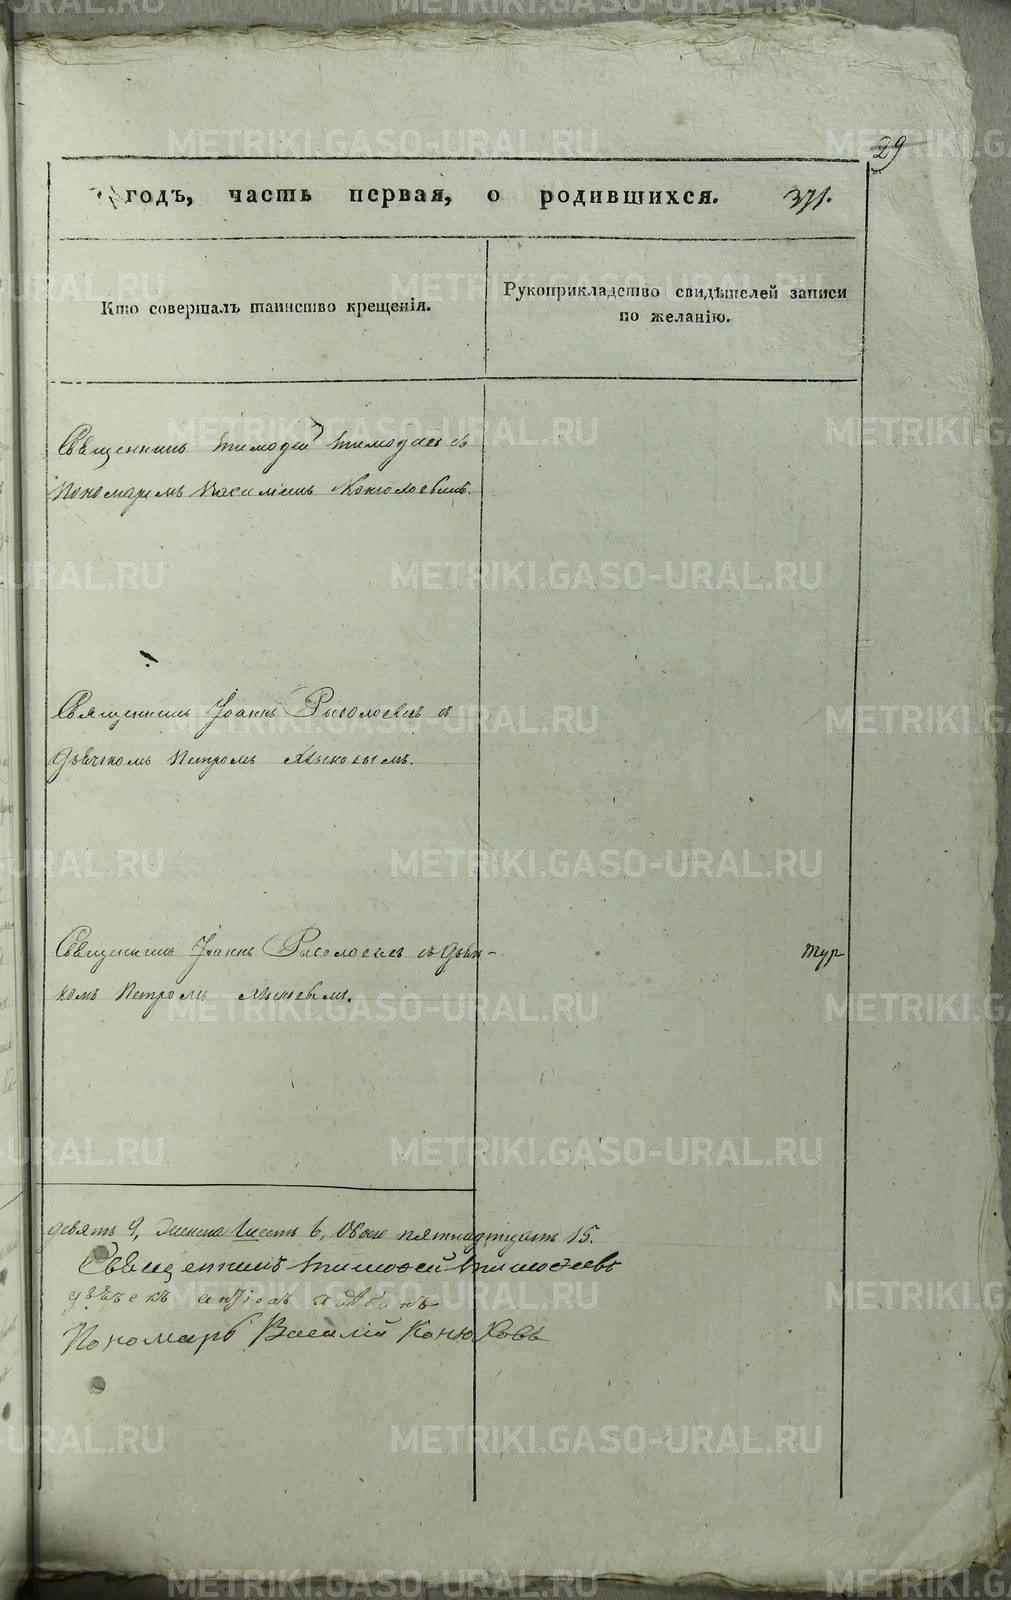 29
годъ, часть первая, о родившихся. 371.
Кто совершалъ таинство крещенія.
Рукоприкладство свидѣтелей записи
по желанію.
Священникъ Тимофей Тимофеевъ съ
Пономаремъ Василіемъ Конюховымъ.
Священникъ Іоаннъ с
дьячкомъ Петромъ
Священникъ Іоаннъ съ дьяч-
комъ Петромъ
тур
девять 9, женска шесть 6, обоего пятнадцать 15.
Священникъ Тимофей Тимофеевъ
дьячекъ
Пономарь Василій Конюховъ
METRIKI.GASO-URAL.RU